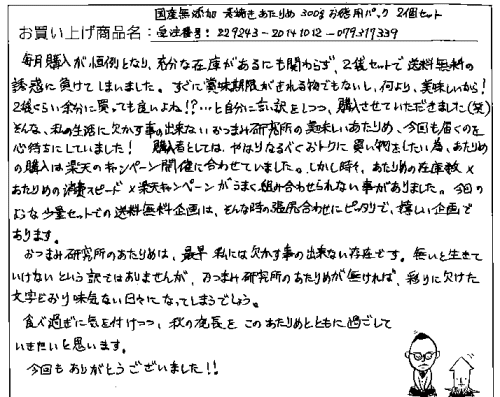 国産無添加 素焼きあたりめ 300g お徳用パック 2個セット
お買い上げ商品名： 受注番号：229243-20141012-079317339
毎月購入が恒例となり、充分な在庫があるにも関わらず、2袋セットで送料無料の
誘惑に負けてしまいました。すぐに賞味期限がきれる物でもないし、何より、美味しいから!
2袋くらい余分に買っても良いよね!?…と自分に言い訳をしつつ、購入させていただきました(笑)
そんな、私の生活に欠かす事の出来ないおつまみ研究所の美味しいあたりめ、今回も届くのを
心待ちにしていました! 購入者としては、やはりなるべくおトクに買い物をしたい為、あたりめ
の購入は楽天のキャンペーン開催に合わせていました。しかし時々、あたりめの在庫数×
あたりめの消費スピード×楽天キャンペーンがうまく組み合わせられない事がありました。今回の
ような少量セットでの送料無料企画は、そんな時の張尻合わせにピッタリで、嬉しい企画で
あります。
おつまみ研究所のあたりめは、最早私には欠かす事の出来ない存在です。無いと生きて
いけないという訳ではありませんが、おつまみ研究所のあたりめが無ければ、彩りに欠けた
文字どおり味気ない日々になってしまうでしょう。
食べ過ぎに気を付けつつ、秋の夜長をこのあたりめとともに過ごして
いきたいと思います。
今回もありがとうございました!!